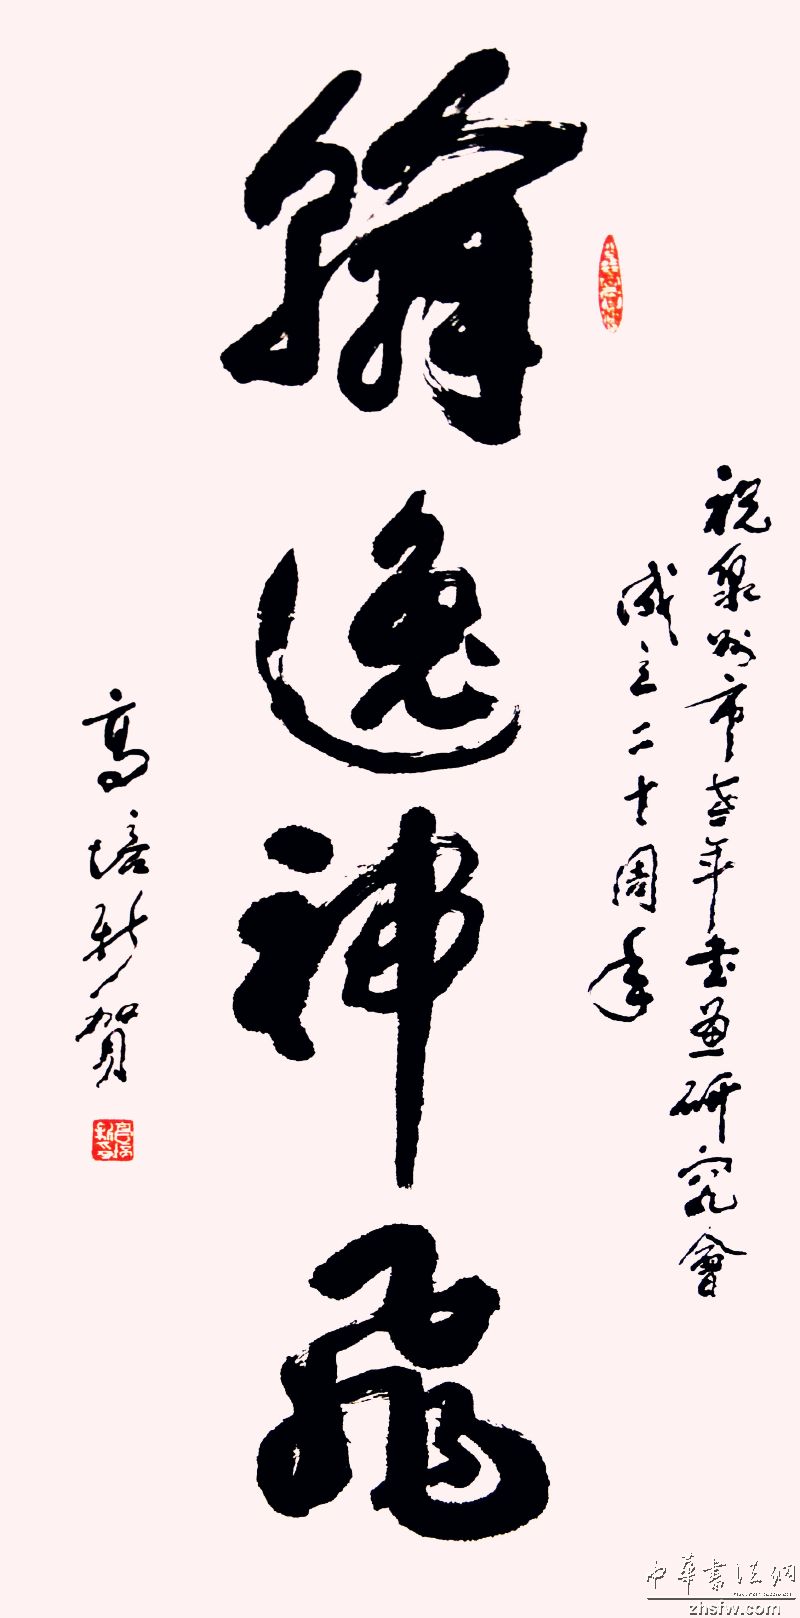 祝泉州市老年书画研究會
成立二十周年
翰逸神飛
高培新贺
中華書法網
zhsfw.com